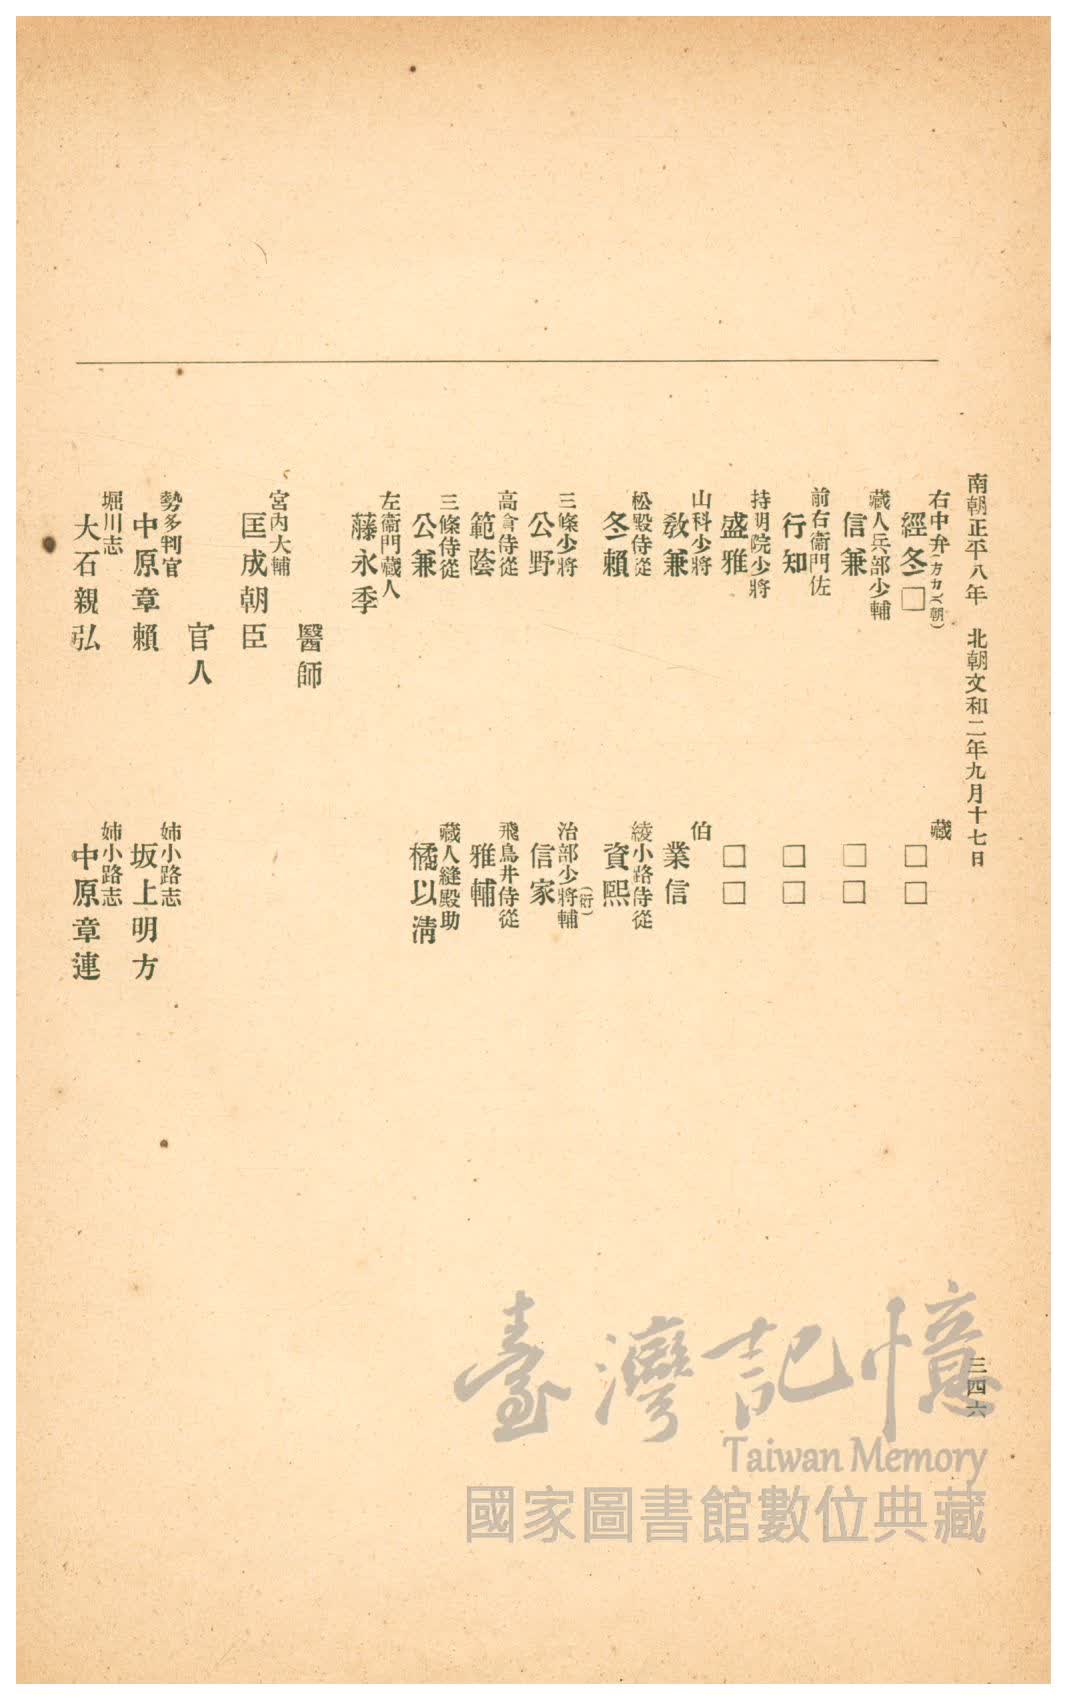 南朝正平八年　北朝文和二年九月十七日
三四六
右中弁(朝)
經冬□
藏
□□
藏人兵部少輔
信兼
□□
前右衞門佐
行知
□□
持明院少將
盛雅
□□
山科少將
敎兼
伯
業信
松殿侍從
冬賴
綾小路侍從
資熙
三條少將
公野
治部少將(衍)輔
信家
高倉侍從
範蔭
飛鳥井侍從
雅輔
三條侍從
公兼
藏人縫殿助
橘以淸
左衞門藏人
藤永季
醫師
宮內大輔
匡成朝臣
官人
勢多判官
中原章賴
姉小路志
坂上明方
堀川志
大石親弘
姉小路志
中原章連
臺灣記憶
Taiwan Memory
國家圖書館數位典藏